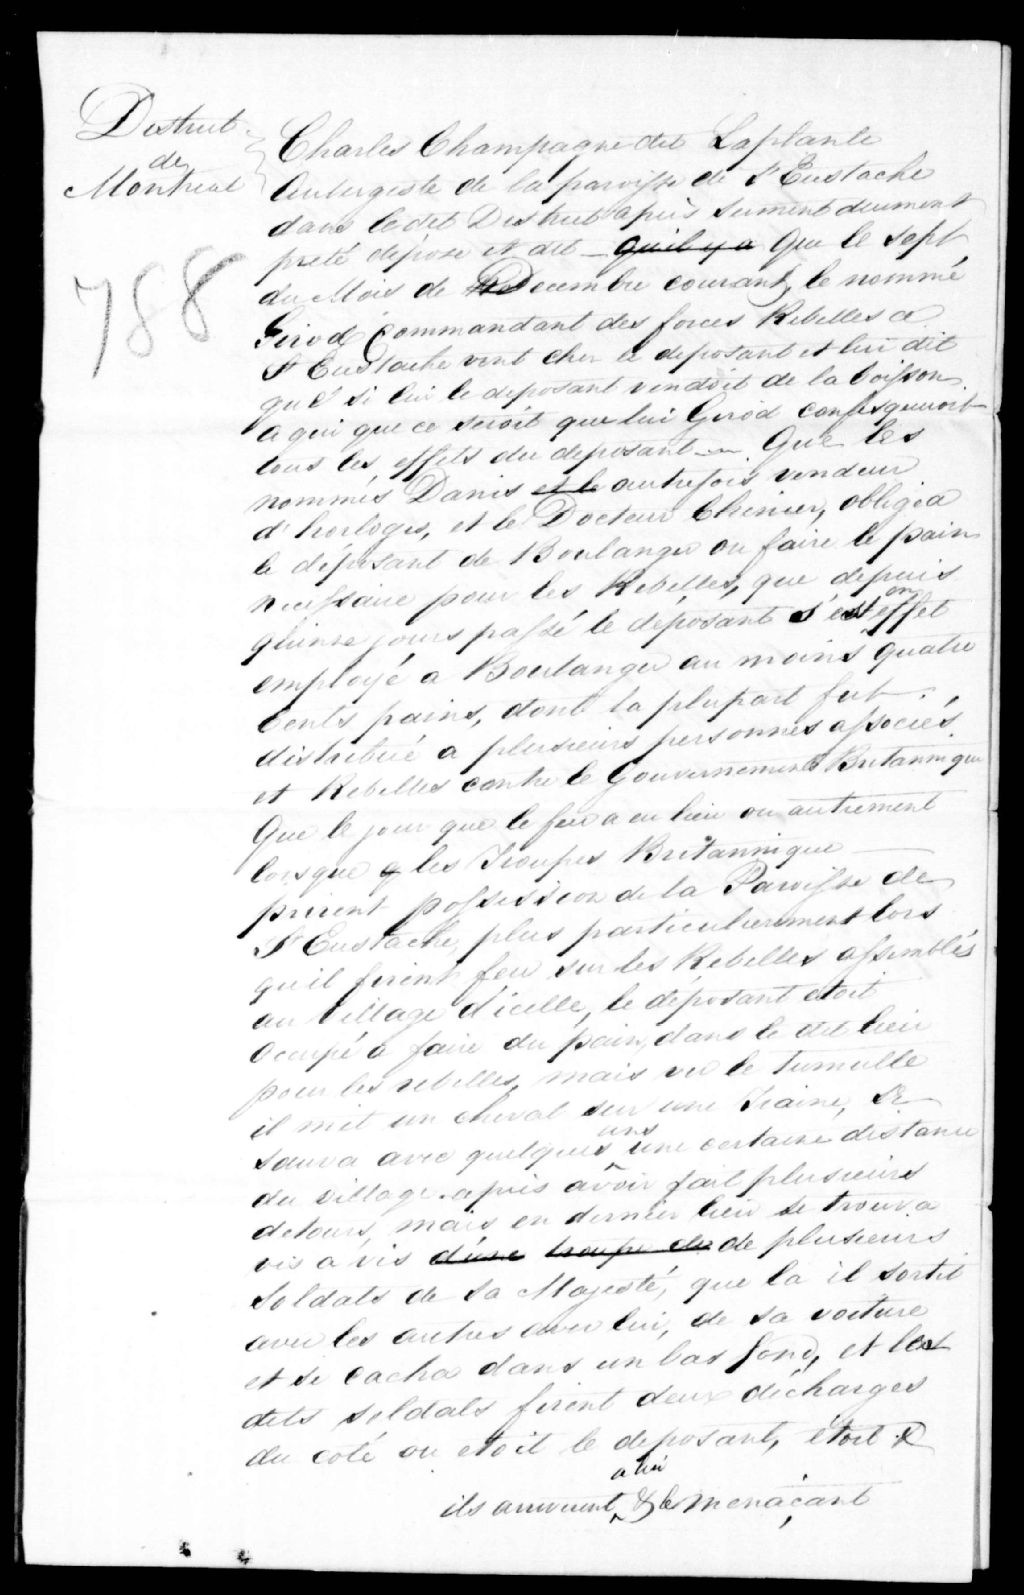 District
de
Montreal
788
Charles Champagne dit Laplante
Aubergiste de la paroisse de St Eustache
dans ledit District après serment duement
preté dépose et dit — qu'il y a Que le sept
du Mois de Decembre courant, le nommé
Girod Commandant des forces Rebelles a
St Eustache vint chez le deposant et lui dit
que si lui le deposant vendoit de la boisson
a qui que ce seroit que lui Girod confisqueroit
tous les effets du deposant — Que les
nommés Danis et le autrefois vendeur
d'horloges, et le Docteur Chenier, obligea
le déposant de Boulanger ou faire le pain
necessaire pour les Rebelles, que depuis
quinze jours passé le déposant s'est en effet
employé a Boulanger au moins quatre
cents pains, dont la plupart fut
distribué a plusieurs personnes associés
et Rebelles contre le Gouvernement Britannique
Que le jour que le feu a eu lieu ou autrement
lorsque q les Troupes Britannique
prirent possession de la Paroisse de
St Eustache, plus particulierement lors
qu'il firent feu sur les Rebelles assemblés
au Village d'icelle, le déposant etoit
Occupé a faire du pain, dans le dit lieu
pour les rebelles, mais vu le tumulte
il mit un cheval sur une Traine, se
sauva avec quelques uns une certaine distance
du village après avoir fait plusieurs
detours, mais en dernier lieu se trouva
vis a vis d'une troupe de de plusieurs
Soldats de Sa Majesté, que la il sortit
avec les autres avec lui, de sa voiture
et se cacha dans un bas fond, et les
dits soldats firent deux décharges
du coté ou etoit le deposant, étoit &
ils arrivèrent a lui & le menaçant